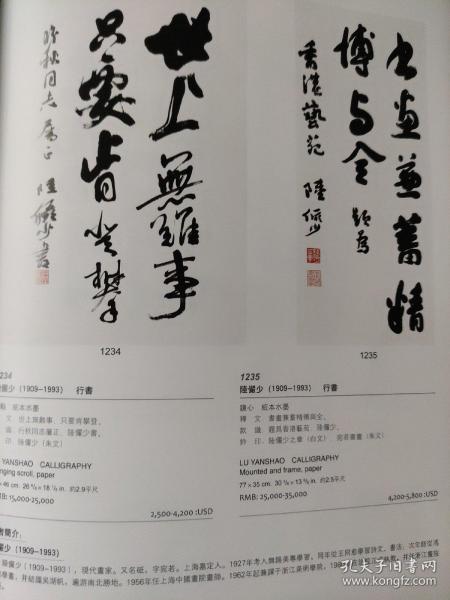 世上無難事
只要肯登攀
秋同志屬正 陸儼少書
書畫兼蓄精
博与全 題為
香港藝苑 陸儼少
1234
1235
234
儼少 (1909-1993) 行書
紙本水墨
文 世上無難事,只要肯學登。
識 行秋同志屬正,陸儼少書。
印 陸儼少(朱文)
YANSHAO CALLIGRAPHY
nging scroll, paper
RMB: 15,000-25,000
2,500-4,200 :USD
1235
陸儼少 (1909-1993) 行書
鏡心 紙本水墨
釋 文 書畫兼蓄精博與全。
款 識 題為香港藝苑,陸儼少。
鈐 印 陸儼少之章(白文)、宛若書畫(朱文)
LU YANSHAO CALLIGRAPHY
Mounted and frame, paper
77 × 35 cm. 30 ¼ × 13 ¾ in. 約2.5平尺
RMB: 25,000-35,000
4,200-5,800 :USD
者簡介:
儼少 (1909-1993)
儼少(1909-1993),現代畫家。又名砥,字宛若。上海嘉定人。1927年考入無錫美專學習。同年從王同愈學習詩文、書法;次年師從馮
學畫,并結識吳湖帆,遍游南北勝地。1956年任上海中國畫院畫師。1962年起兼課于浙江美術學院,
孔夫子旧书网